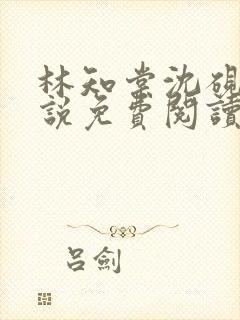 林知棠沈硯
説免費閱讀
呂劍